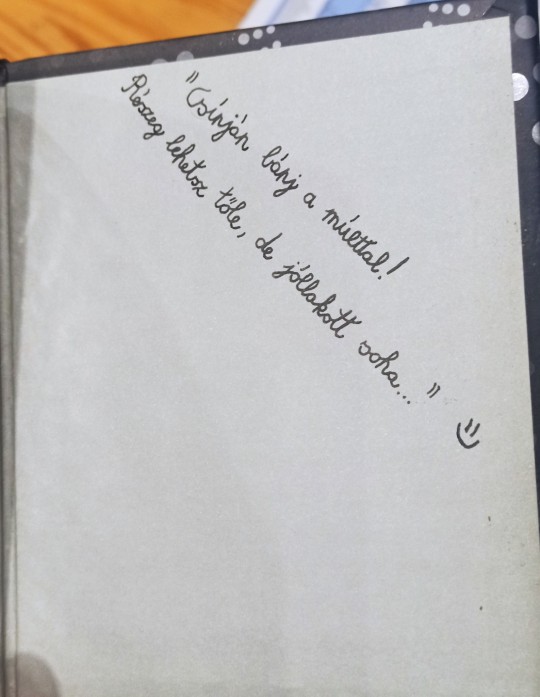 "Csínján bánj a múlttal!
Részeg lehetsz tőle, de jóllakott soha..." :)